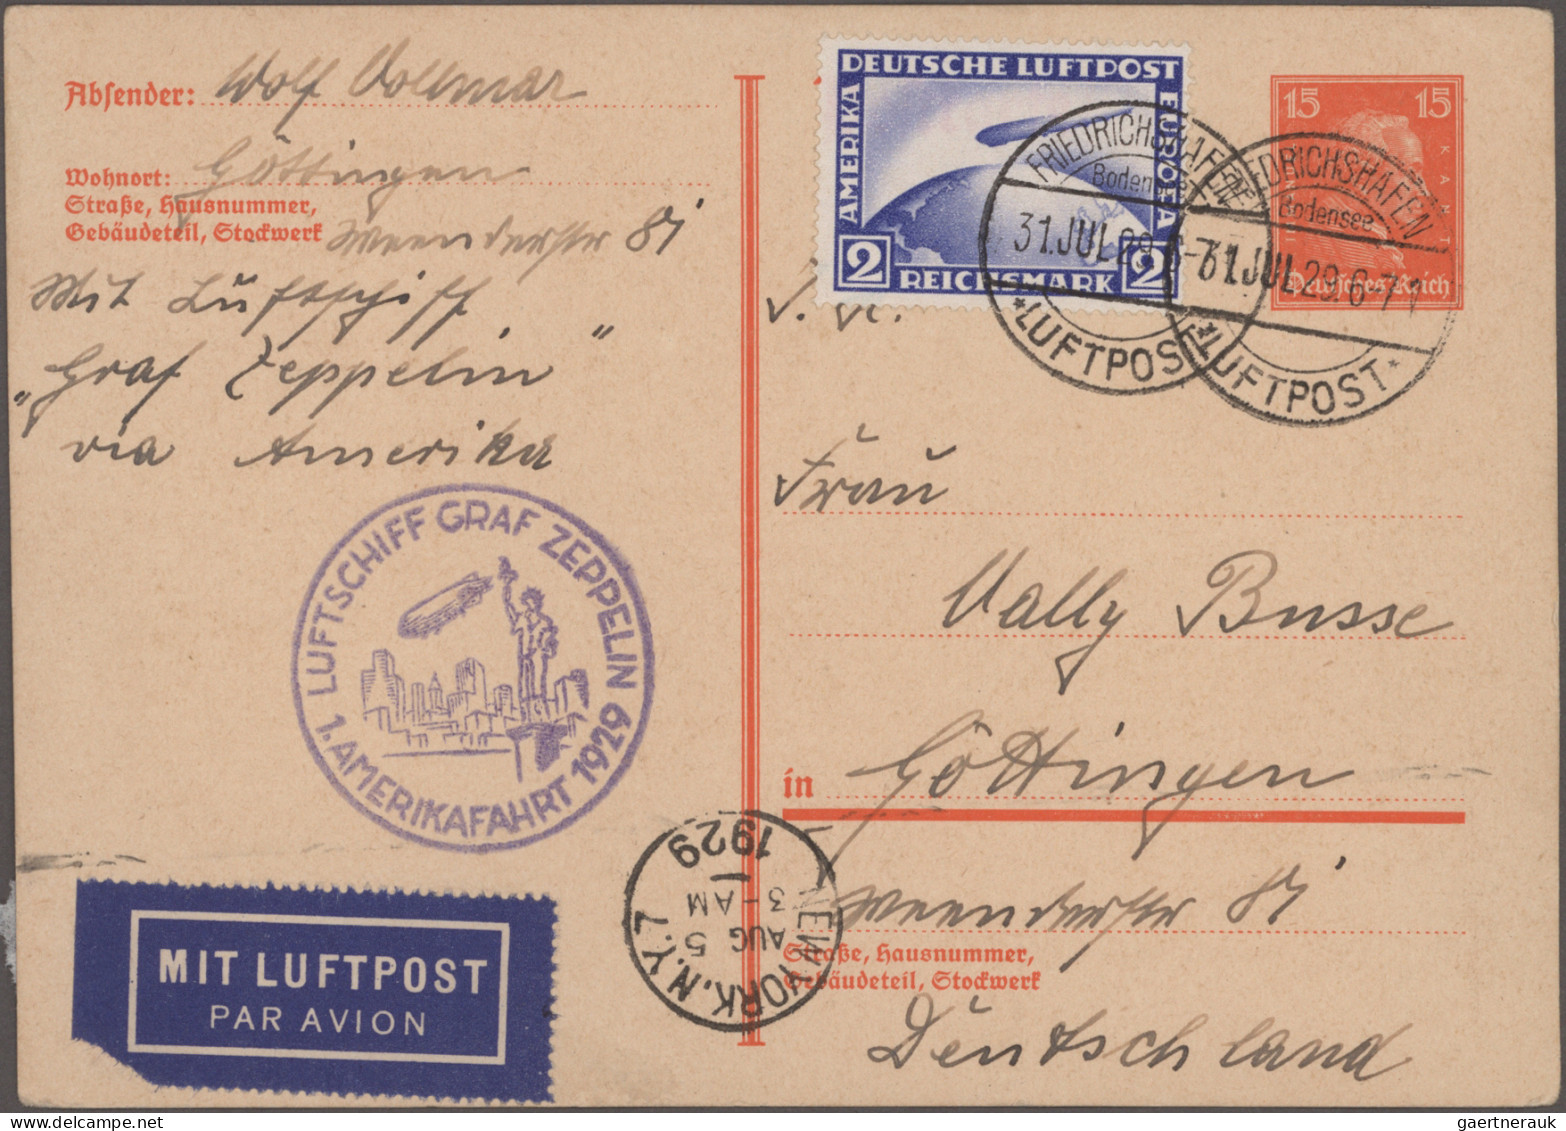 Absender: Wolf Vollmar
Wohnort: Göttingen
Straße, Hausnummer,
Gebäudeteil, Stockwerk Weenderstr 81
Mit Luftschiff
„Graf Zeppelin“
via Amerika
LUFTSCHIFF GRAF ZEPPELIN
1. AMERIKAFAHRT 1929
MIT LUFTPOST
PAR AVION
DEUTSCHE LUFTPOST
AMERIKA
EUROPA
2 REICHSMARK 2
FRIEDRICHSHAFEN
Bodensee
31.JUL.29. 6-7
*LUFTPOST
FRIEDRICHSHAFEN
Bodensee
31.JUL.29. 6-7
*LUFTPOST*
15 15
KANT
Deutsches Reich
Frau
Vally Busse
in Göttingen
Weenderstr 81
Straße, Hausnummer,
Gebäudeteil, Stockwerk
Deutschland
NEW YORK. N.Y. 7
AUG 5
3-AM
1929
gaertnerauk